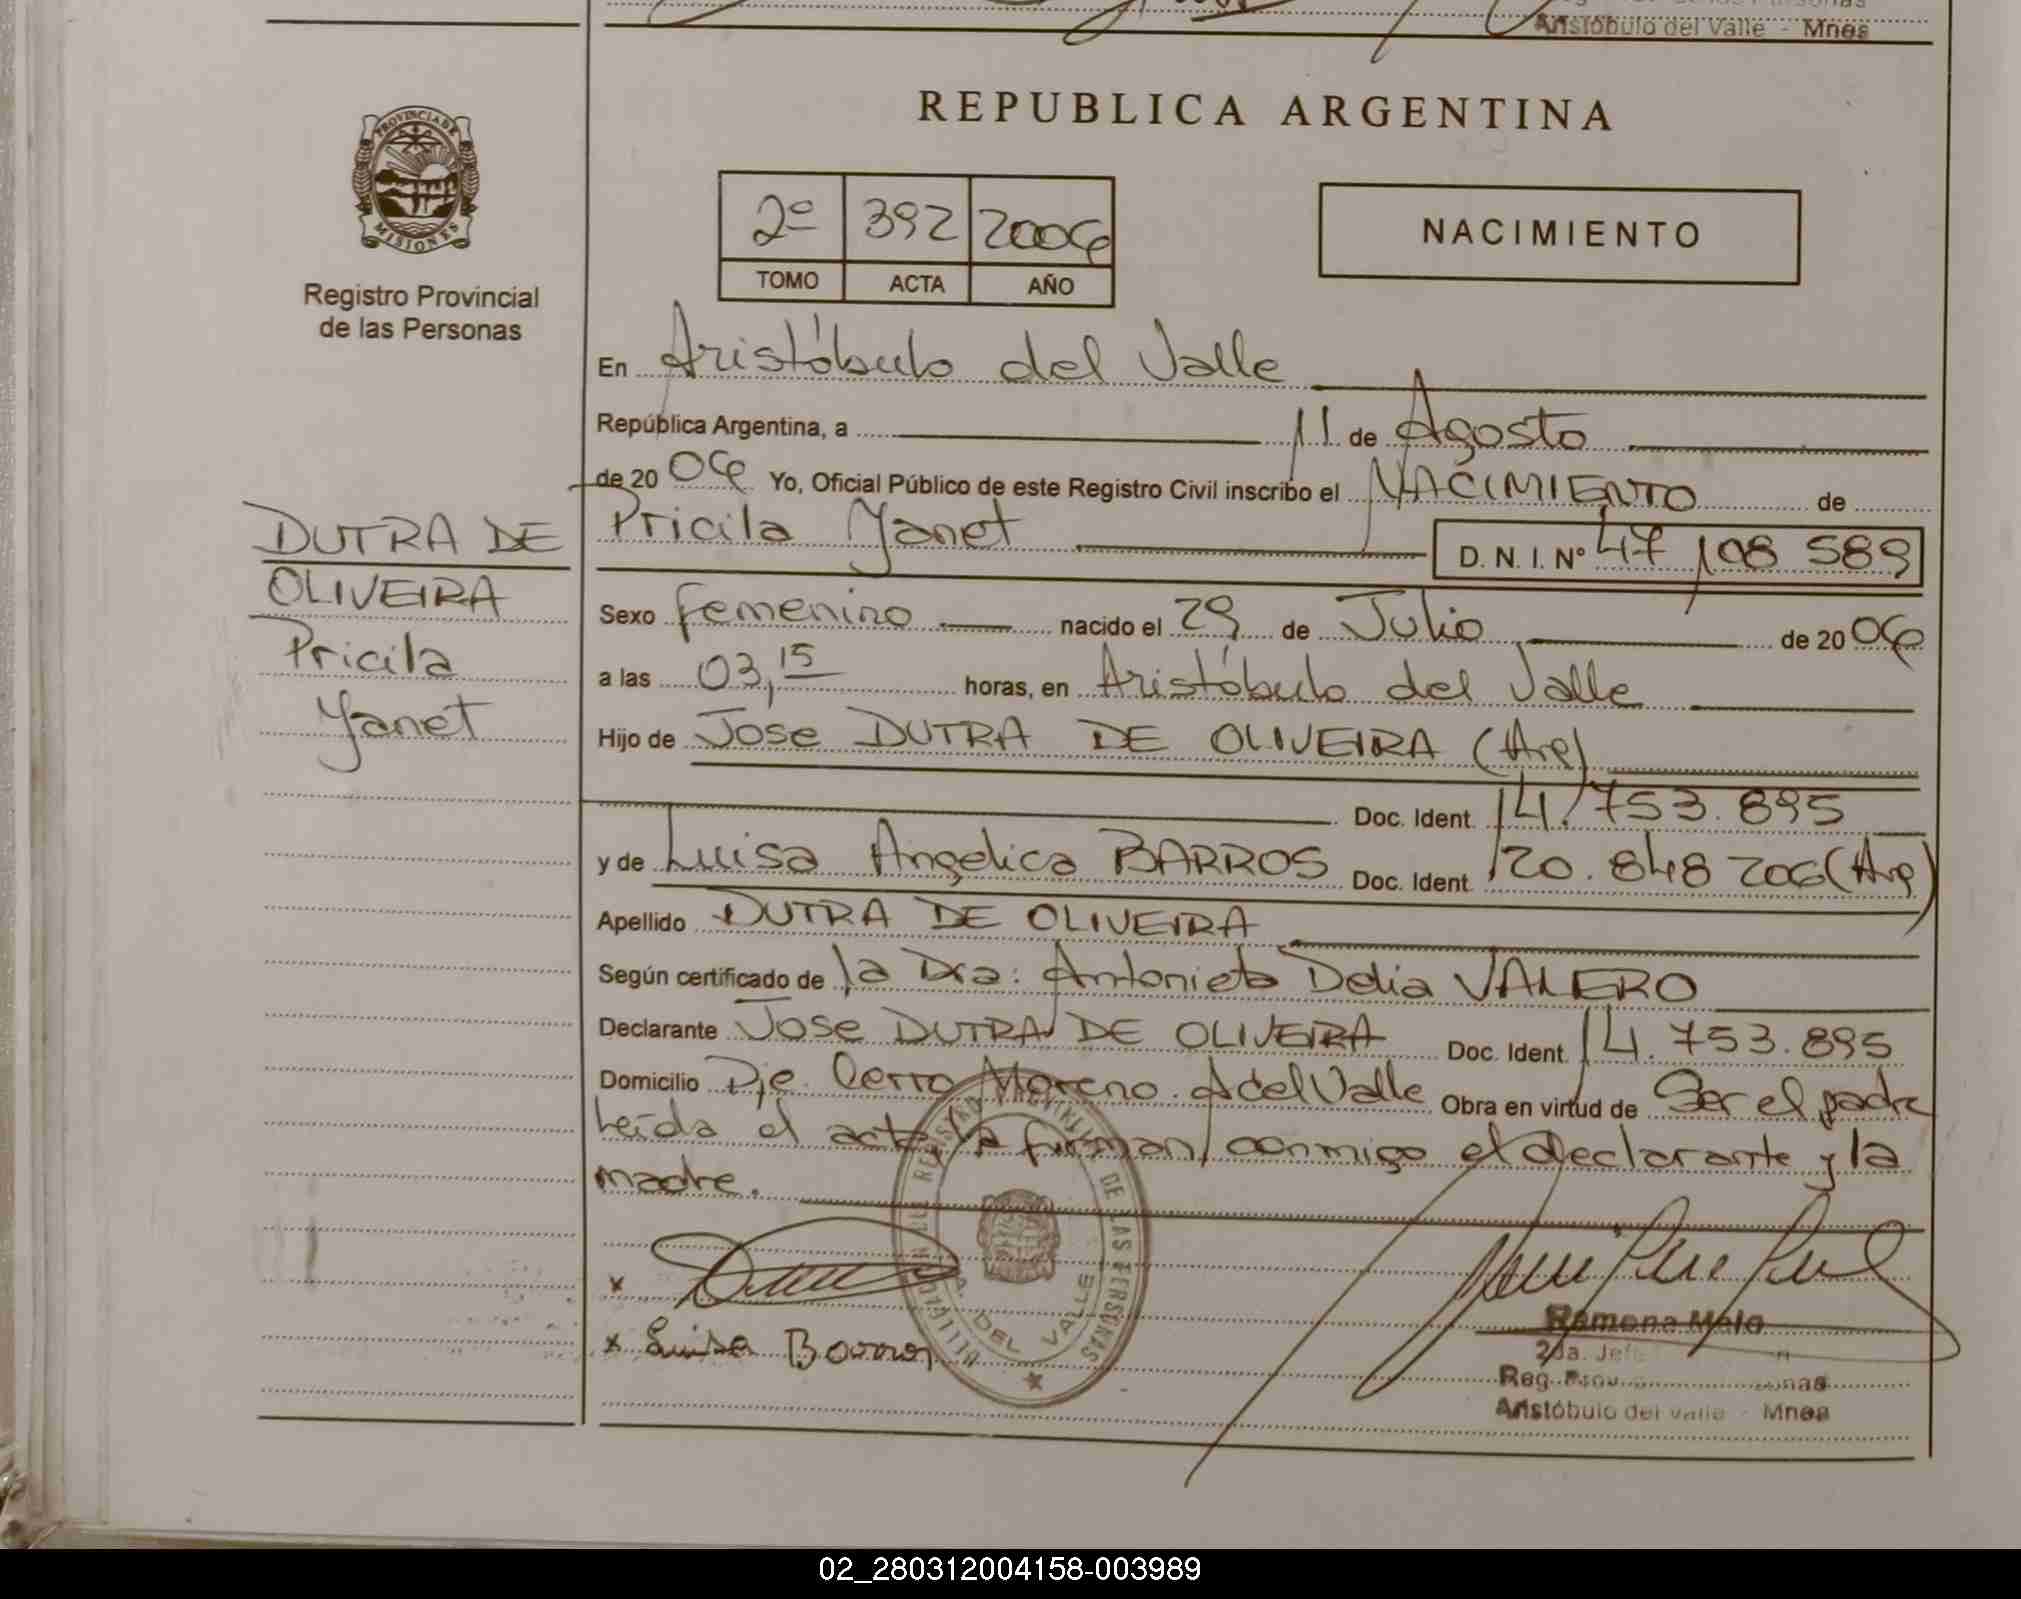 Aristóbulo del Valle - Mnes
PROVINCIA DE
MISIONES
Registro Provincial
de las Personas
REPUBLICA ARGENTINA
2º 392 2006
TOMO ACTA AÑO
NACIMIENTO
En Aristóbulo del Valle
República Argentina, a 11 de Agosto
de 20 06 Yo, Oficial Público de este Registro Civil inscribo el NACIMIENTO de
Pricila Yanet D. N. I. Nº 47 108 589
DUTRA DE
OLIVEIRA
Pricila
Yanet
Sexo femenino nacido el 29 de Julio de 20 06
a las 03,15 horas, en Aristóbulo del Valle
Hijo de Jose DUTRA DE OLIVEIRA (Arg)
Doc. Ident. 14.753.895
y de Luisa Angelica BARROS Doc. Ident. 20.848 206 (Arg)
Apellido DUTRA DE OLIVEIRA
Según certificado de la Dra: Antonieta Delia VALERO
Declarante Jose DUTRA DE OLIVEIRA Doc. Ident. 14.753.895
Domicilio Pje. Cerro Moreno. A del Valle Obra en virtud de Ser el padre
Leída el acta la firman conmigo el declarante y la
madre.
DE LAS PERSONAS
DEL VALLE
x
x Luisa Barros
Ramona Melo
2da. Jefe
Reg. Prov.
Aristóbulo del Valle - Mnes
02_280312004158-003989